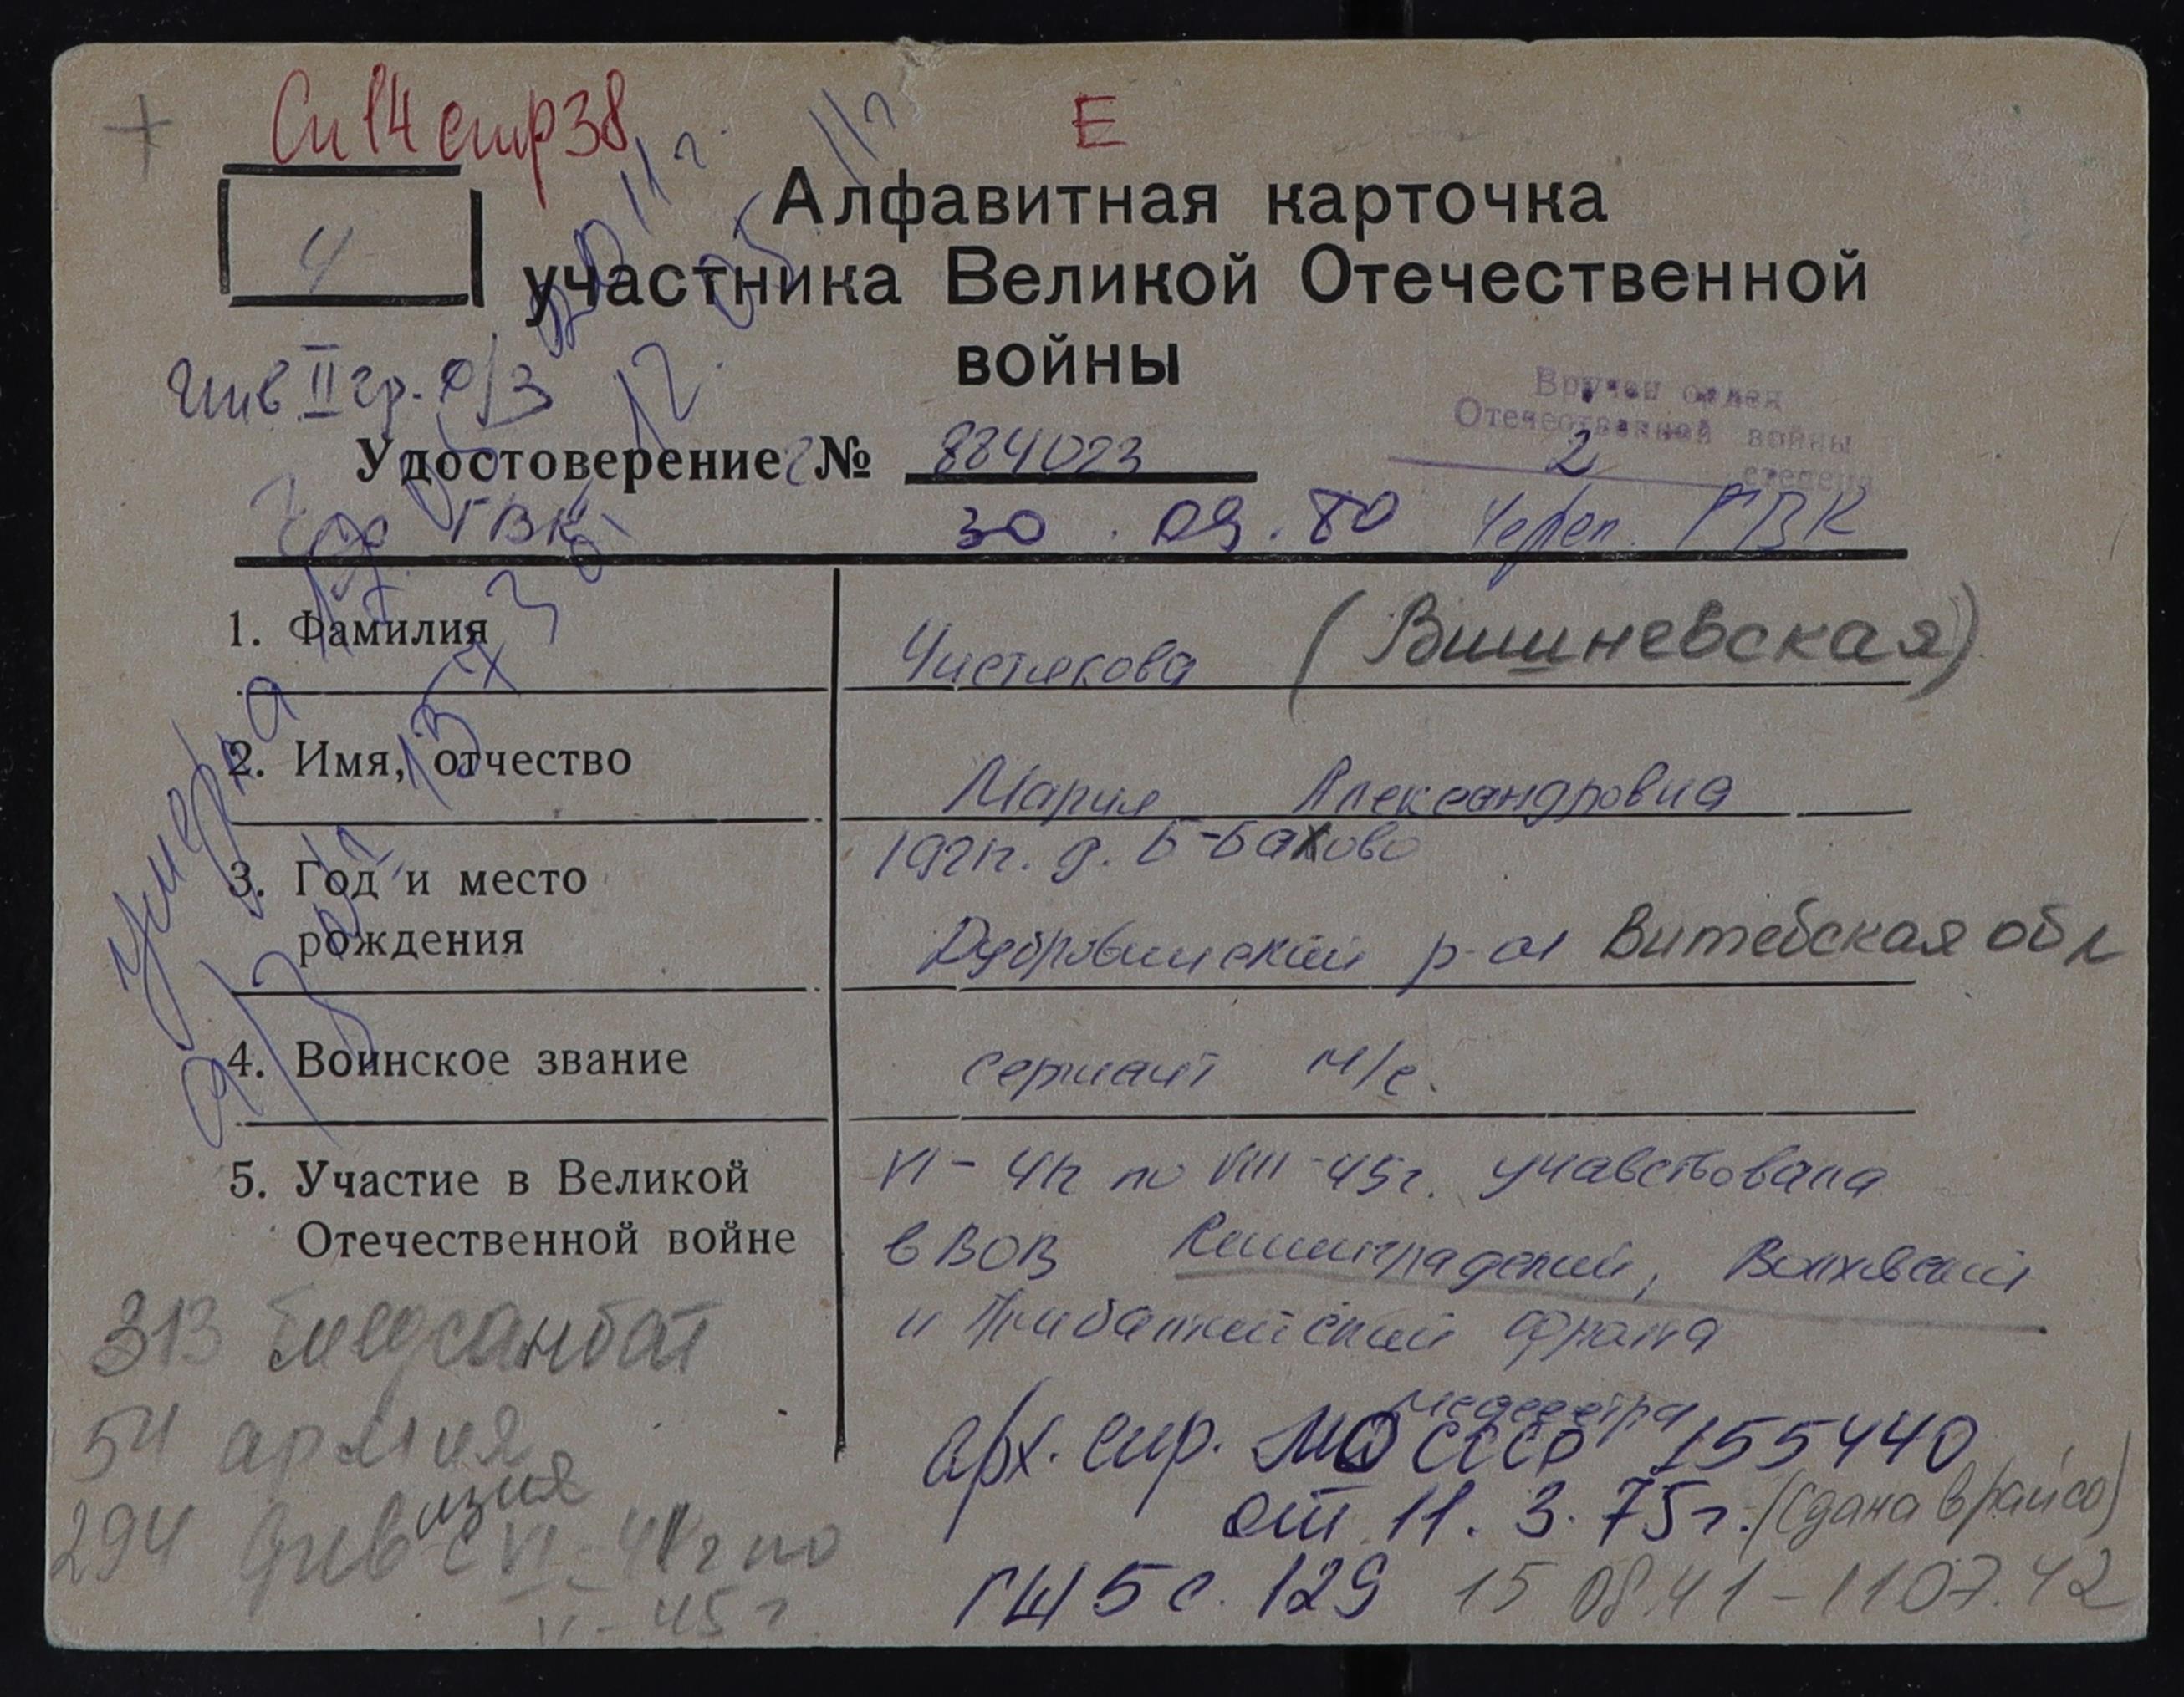 Сп 14 стр 38
Е
Ч
Алфавитная карточка
участника Великой Отечественной
войны
Инв II гр. о/з
Вручен орден
Отечественной войны
2 степени
Удостоверение № 884023
ГВК 30.09.80 Череп. ГВК
1. Фамилия Чистякова (Вишневская)
2. Имя, отчество Мария Александровна
3. Год и место рождения 1921г. д. Б-Бахово
Дубровинский р-он Витебская обл
4. Воинское звание сержант м/с.
5. Участие в Великой Отечественной войне VI-41г по VIII-45г. учавствовала
в ВОВ Ленинградский, Волховский
и Прибалтийский фронта
медсестра
умерла
313 медсанбат
54 армия
294 дивизия
с VI-41г по
V-45г.
арх. спр. МО СССР 155440
от 11.3.75г. (сдана в райсо)
ГШ 5 с. 129 15 08.41-11 07.42